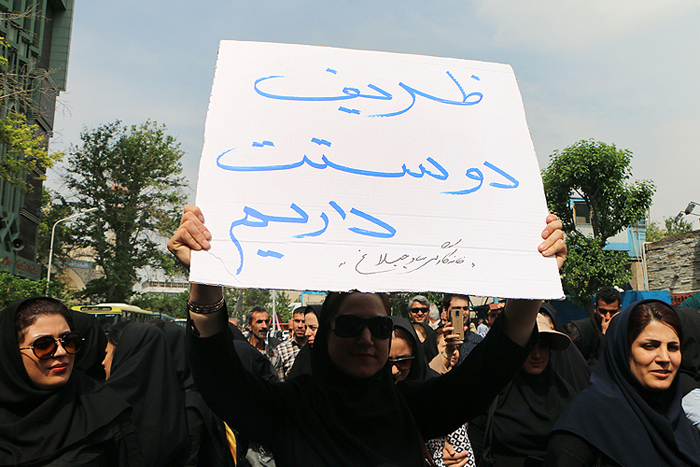 ظریف
دوستت
داریم